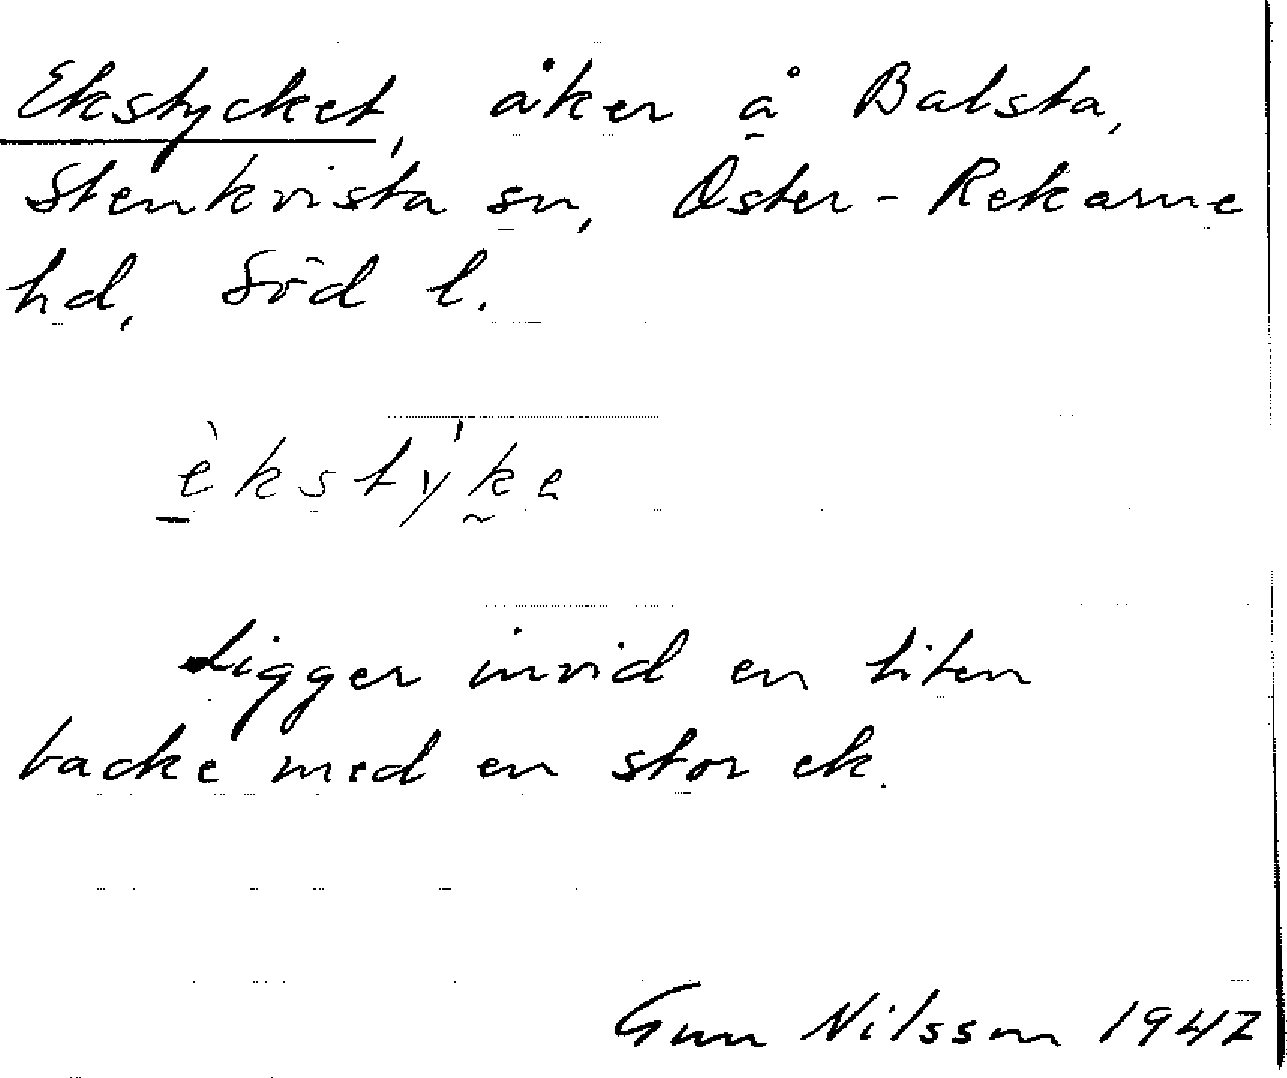 Ekstycket, åker å Balsta,
Stenkvista sn, Öster-Rekarne
hd, Söd l.
èkstyke
Ligger invid en liten
backe med en stor ek.
Gun Nilsson 1947